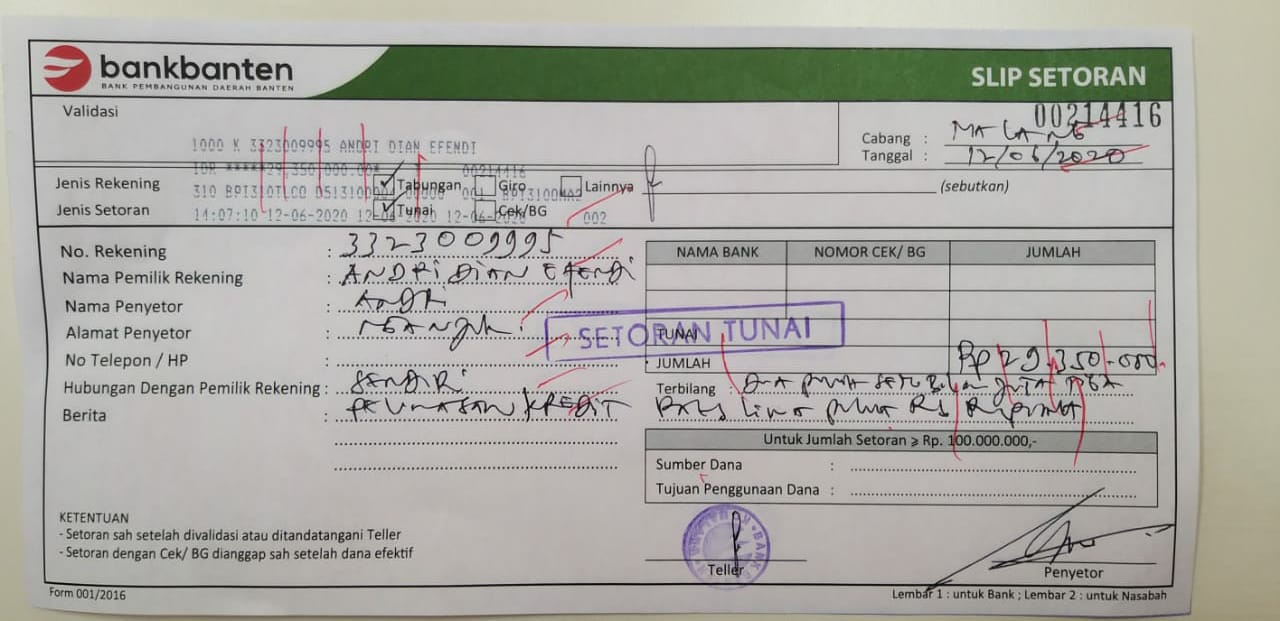 bankbanten
BANK PEMBANGUNAN DAERAH BANTEN
SLIP SETORAN
00214416
Validasi
Cabang : MALANG
Tanggal : 12/06/2020
1000 K 3323009995 ANDRI DIAN EFENDI
IDR *****29,350,000.00* 00214416
Jenis Rekening Tabungan Giro Lainnya (sebutkan)
310 BPI3
Jenis Setoran Tunai Cek/BG
14:07:10 12-06-2020 002
No. Rekening : 3323009995
Nama Pemilik Rekening : ANDRI DIAN EFENDI
Nama Penyetor : ANDRI
Alamat Penyetor :
No Telepon / HP
Hubungan Dengan Pemilik Rekening : SENDIRI
Berita : PELUNASAN KREDIT
NAMA BANK NOMOR CEK/ BG JUMLAH
SETORAN TUNAI
TUNAI
JUMLAH Rp 29.350.000
Terbilang : DUA PULUH SEMBILAN JUTA TIGA
RATUS LIMA PULUH RIBU RUPIAH
Untuk Jumlah Setoran ⩾ Rp. 100.000.000,-
Sumber Dana :
Tujuan Penggunaan Dana :
KETENTUAN
- Setoran sah setelah divalidasi atau ditandatangani Teller
- Setoran dengan Cek/ BG dianggap sah setelah dana efektif
Teller
Penyetor
Form 001/2016
Lembar 1 : untuk Bank ; Lembar 2 : untuk Nasabah